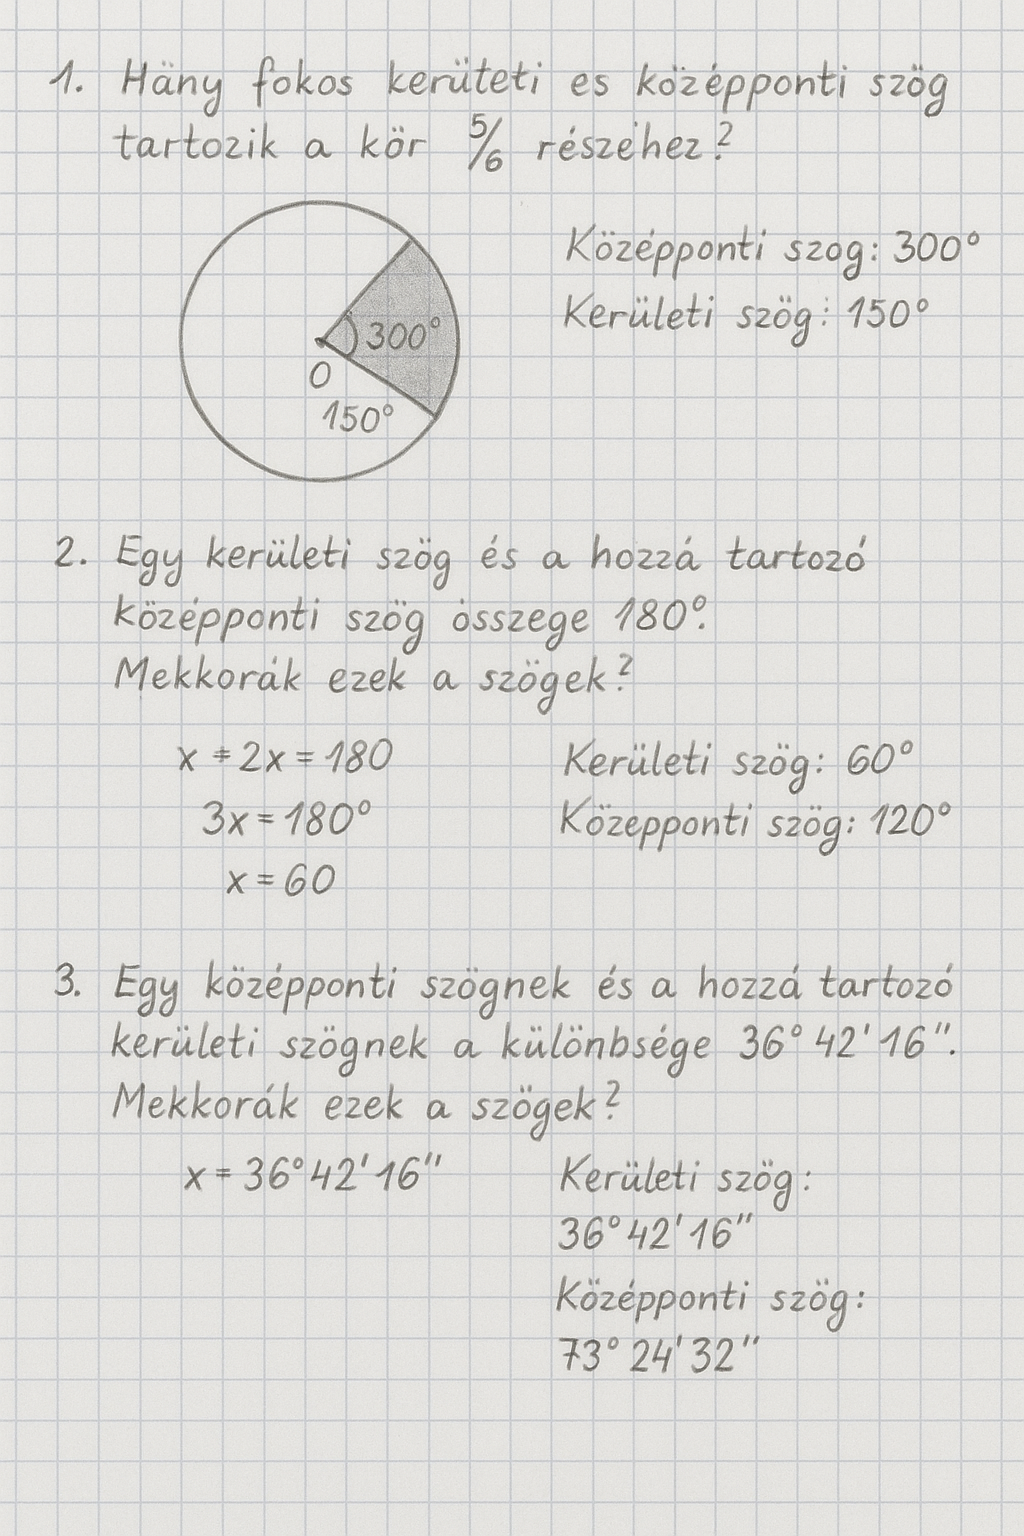 1. Häny fokos kerüteti es középponti szög
tartozik a kör 5/6 részéhez?
Középponti szog: 300°
Kerületi szög: 150°
300°
O
150°
2. Egy kerületi szög és a hozzá tartozó
középponti szög összege 180°.
Mekkorák ezek a szögek?
x + 2x = 180
3x = 180°
x = 60
Kerületi szög: 60°
Közepponti szög: 120°
3. Egy középponti szögnek és a hozzá tartozó
kerületi szögnek a különbsége 36° 42' 16".
Mekkorák ezek a szögek?
x = 36° 42' 16"
Kerületi szög:
36° 42' 16"
Középponti szög:
73° 24' 32"